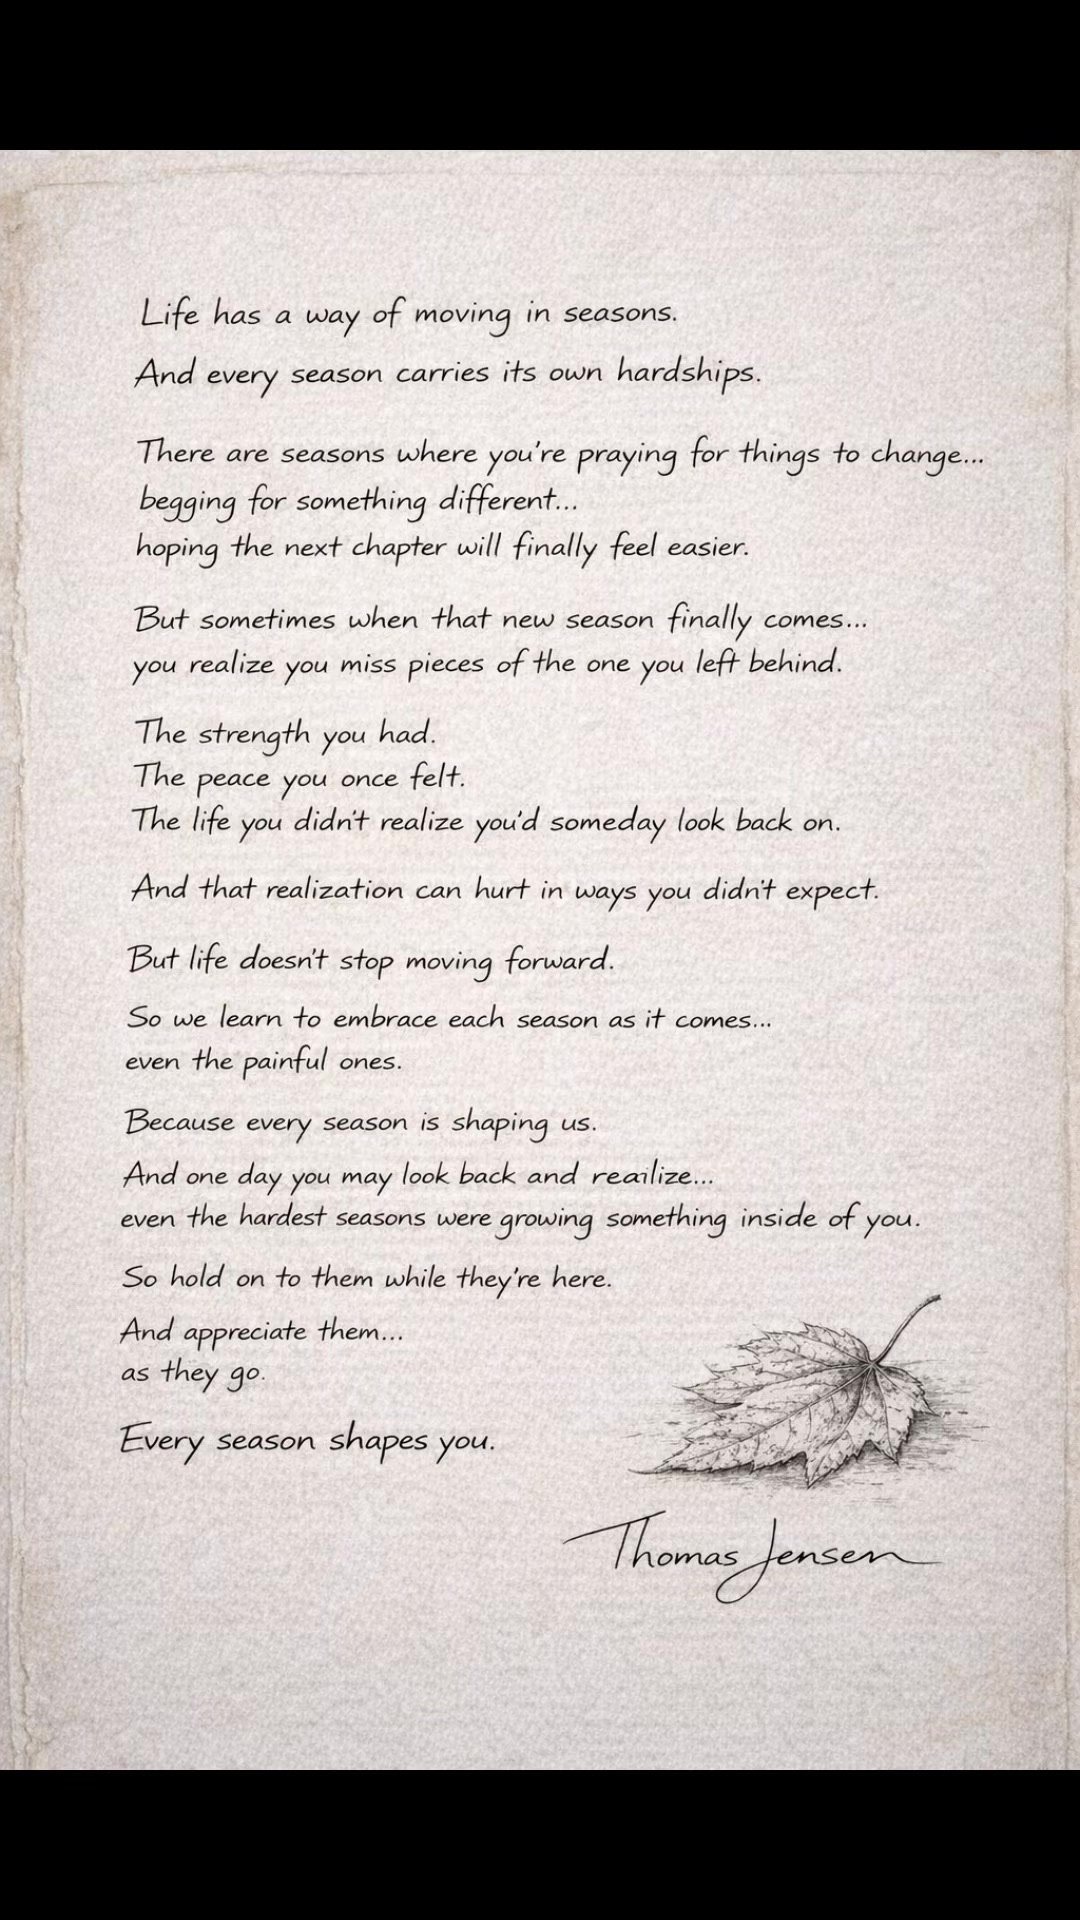 Life has a way of moving in seasons.
And every season carries its own hardships.
There are seasons where you're praying for things to change...
begging for something different...
hoping the next chapter will finally feel easier.
But sometimes when that new season finally comes...
you realize you miss pieces of the one you left behind.
The strength you had.
The peace you once felt.
The life you didn't realize you'd someday look back on.
And that realization can hurt in ways you didn't expect.
But life doesn't stop moving forward.
So we learn to embrace each season as it comes...
even the painful ones.
Because every season is shaping us.
And one day you may look back and reailize...
even the hardest seasons were growing something inside of you.
So hold on to them while they're here.
And appreciate them...
as they go.
Every season shapes you.
Thomas Jensen